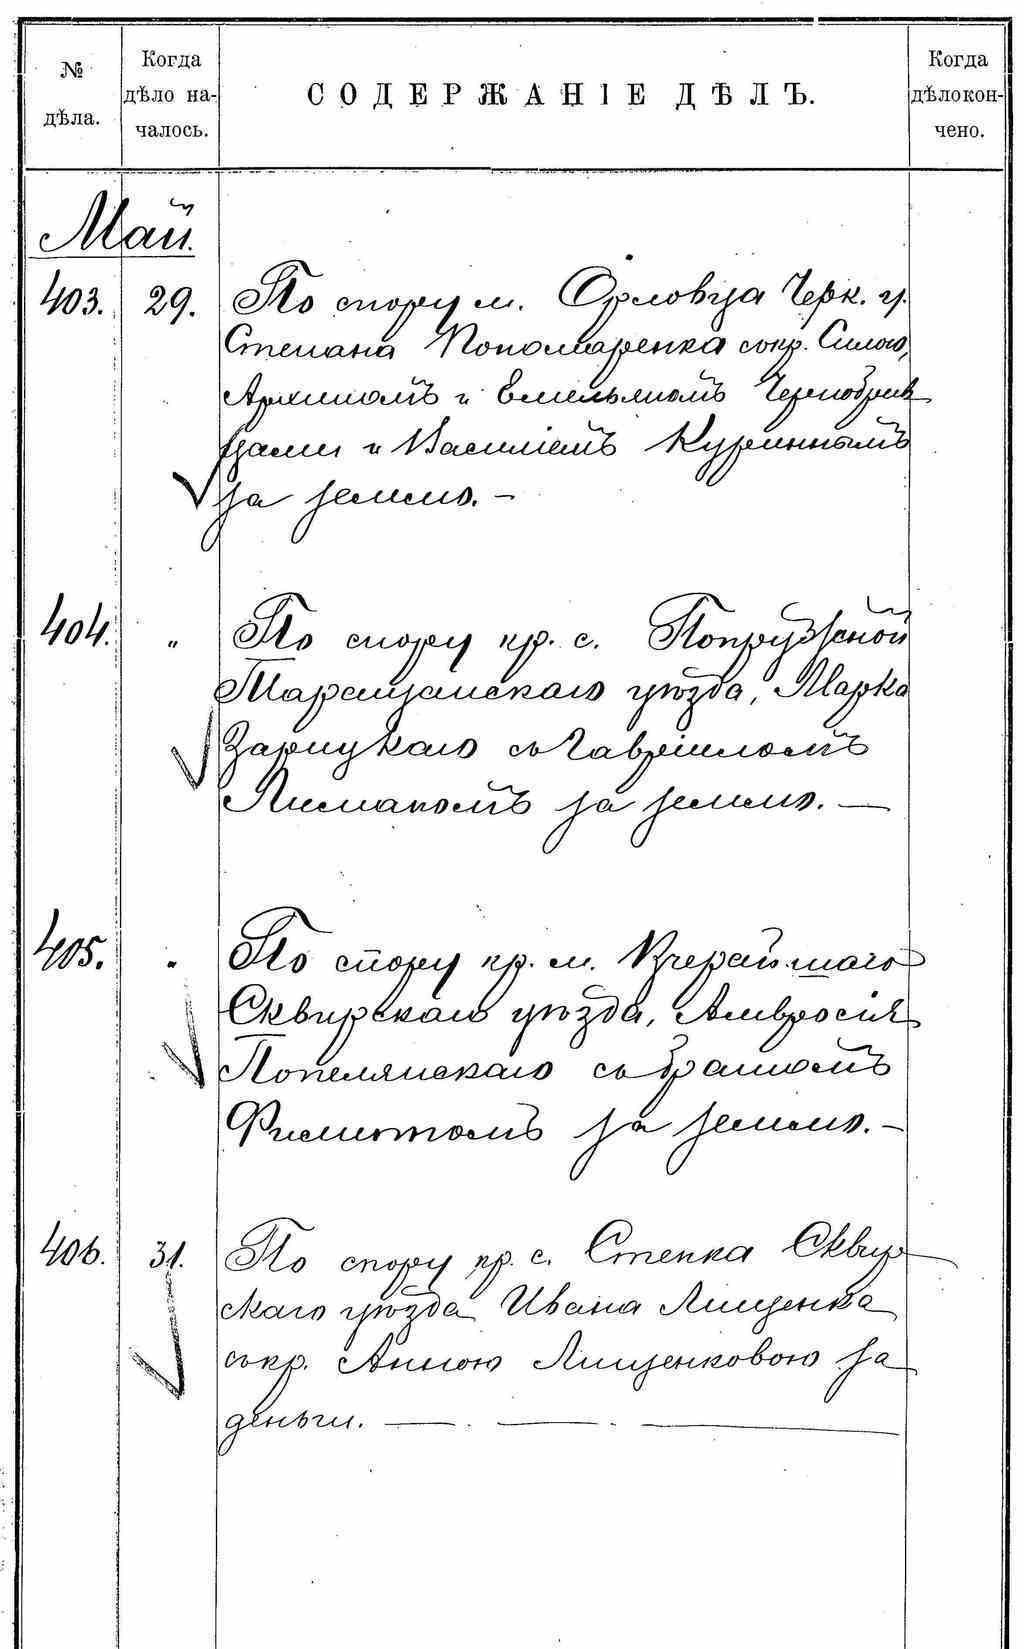 № дѣла.
Когда дѣло на-
чалось.
СОДЕРЖАНІЕ ДѢЛЪ.
Когда дѣло кон-
чено.
Май.
403. 29. По спору м. Орловца Черк. у.
Степана Пономаренка съ кр. Силою,
Архипомъ и Емельяномъ Чернобрив
цами и Василіемъ Куриннымъ
за землю. —
404. " По спору кр. с. Попружной
Таращанскаго уѣзда, Марка
Зарицкаго съ Гавріиломъ
Лиманомъ за землю. —
405. " По спору кр. м. Вчерайшаго
Сквирскаго уѣзда, Амвросія
Попелянскаго съ братомъ
Филиппомъ за землю. —
406. 31. По спору кр. с. Степка Сквир
скаго уѣзда Ивана Лищенка
съ кр. Анною Лищенковою за
деньги. — . — . —